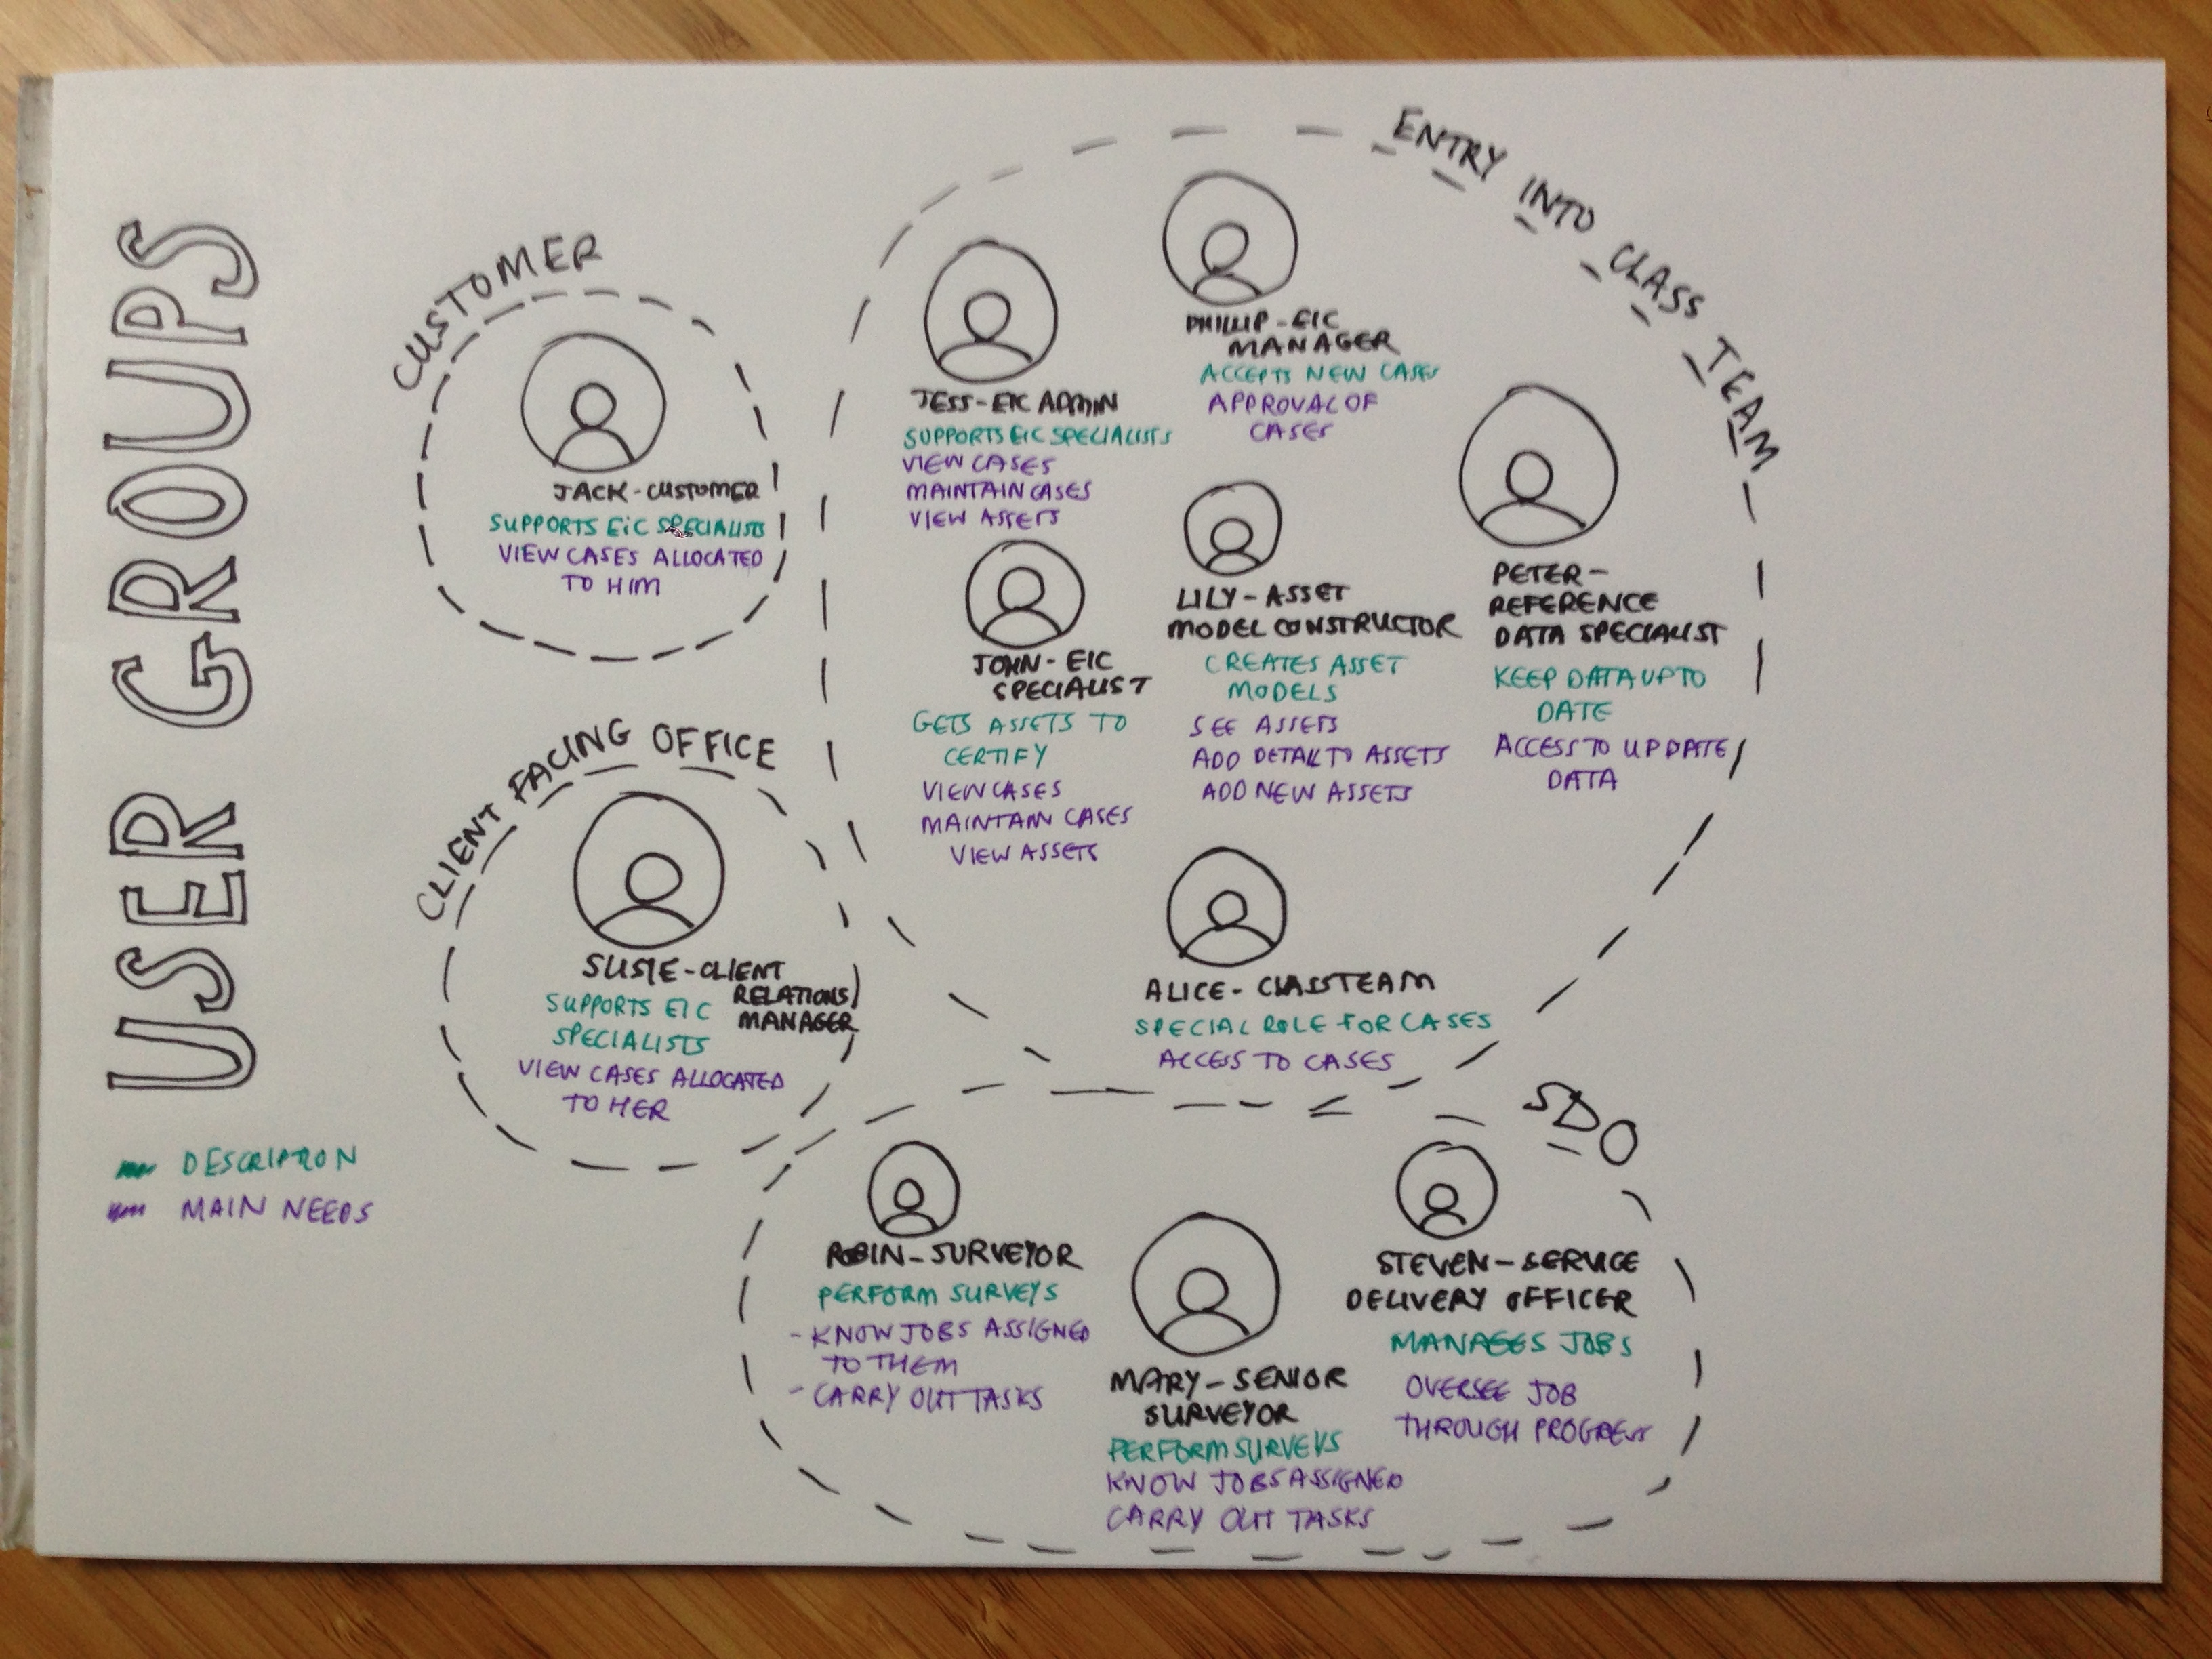 USER GROUPS
CUSTOMER
JACK-CUSTOMER
SUPPORTS EIC SPECIALISTS
VIEW CASES ALLOCATED
TO HIM
ENTRY INTO CLASS TEAM
PHILLIP-EIC
MANAGER
ACCEPTS NEW CASES
APPROVAL OF
CASES
JESS-EIC ADMIN
SUPPORTS EIC SPECIALISTS
VIEW CASES
MAINTAIN CASES
VIEW ASSETS
JOHN-EIC
SPECIALIST
GETS ASSETS TO
CERTIFY
VIEW CASES
MAINTAIN CASES
VIEW ASSETS
LILY-ASSET
MODEL CONSTRUCTOR
CREATES ASSET
MODELS
SEE ASSETS
ADD DETAIL TO ASSETS
ADD NEW ASSETS
PETER-
REFERENCE
DATA SPECIALIST
KEEP DATA UP TO
DATE
ACCESS TO UPDATE
DATA
ALICE-CLASSTEAM
SPECIAL ROLE FOR CASES
ACCESS TO CASES
CLIENT FACING OFFICE
SUSIE-CLIENT
RELATIONS
MANAGER
SUPPORTS EIC
SPECIALISTS
VIEW CASES ALLOCATED
TO HER
SDO
ROBIN-SURVEYOR
PERFORM SURVEYS
- KNOW JOBS ASSIGNED
TO THEM
- CARRY OUT TASKS
MARY-SENIOR
SURVEYOR
PERFORM SURVEYS
KNOW JOBS ASSIGNED
CARRY OUT TASKS
STEVEN-SERVICE
DELIVERY OFFICER
MANAGES JOBS
OVERSEE JOB
THROUGH PROGRESS
DESCRIPTION
MAIN NEEDS